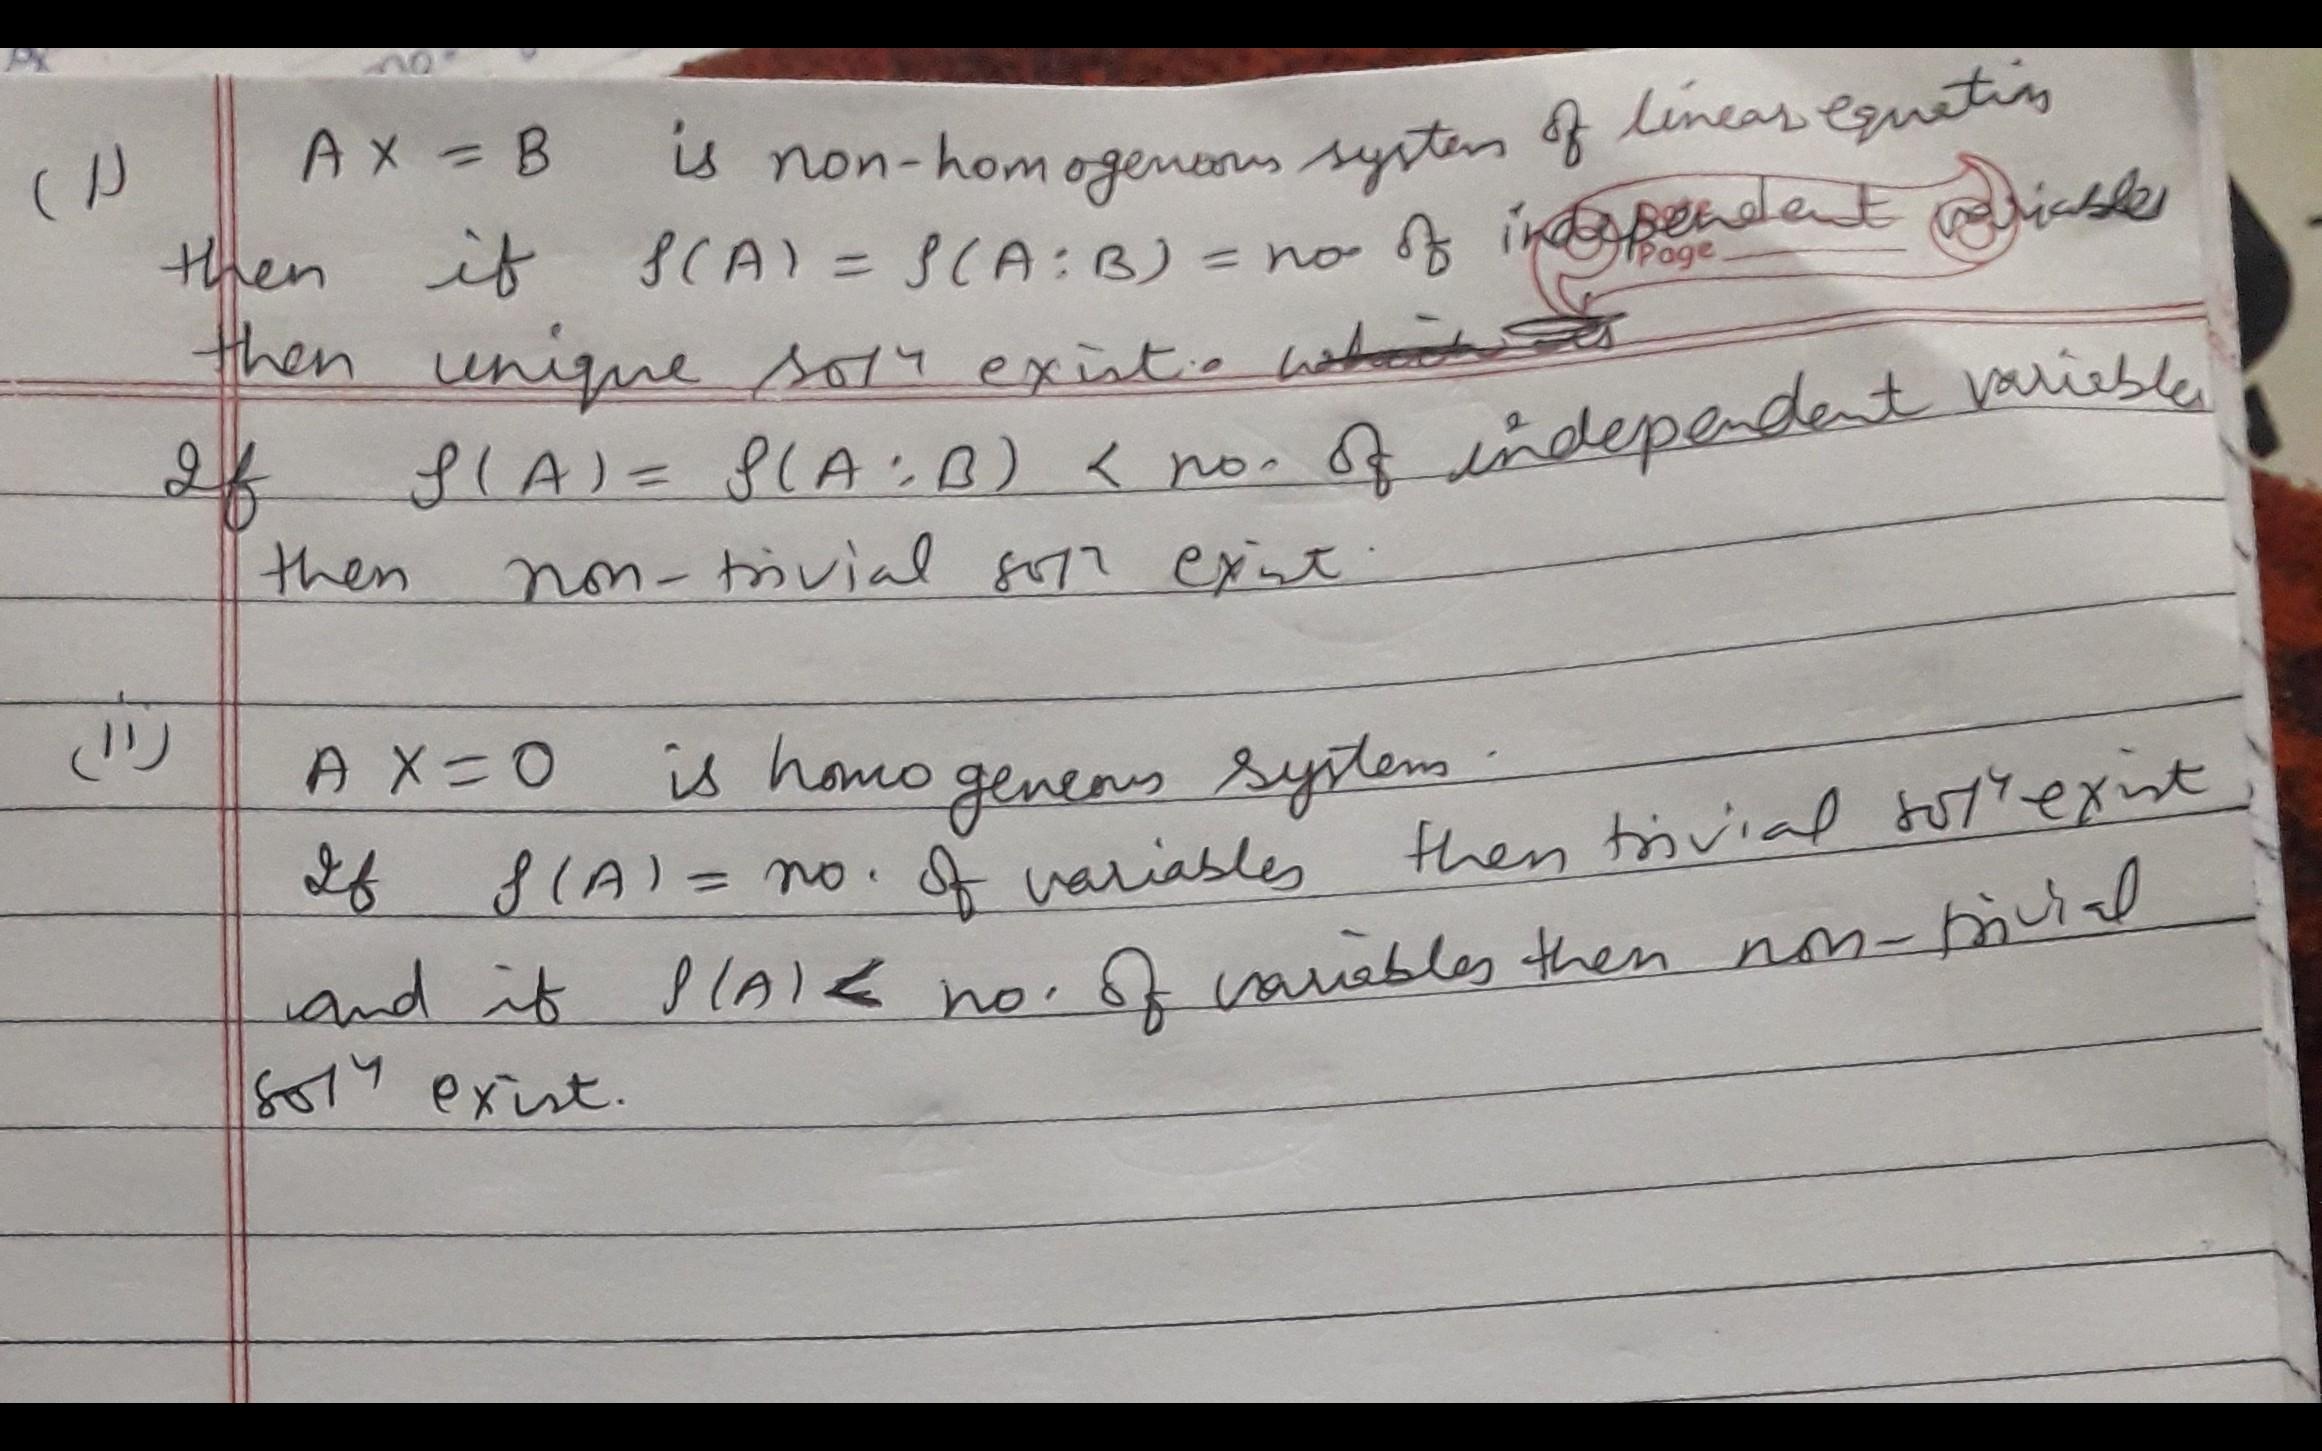 (i) AX = B is non-homogenous system of linear equations
then if ρ(A) = ρ(A:B) = no of independent variables
Page
then unique solⁿ exist.
If ρ(A) = ρ(A:B) < no. of independent variables
then non-trivial solⁿ exist.
(ii) AX = 0 is homogeneous system.
If ρ(A) = no. of variables then trivial solⁿ exist
and if ρ(A) < no. of variables then non-trivial
solⁿ exist.